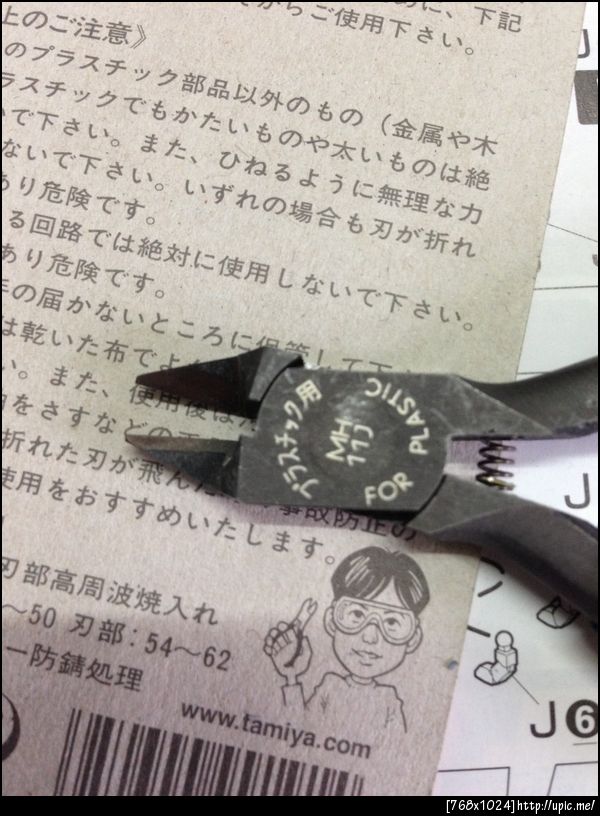 からご使用下さい。
に、下記
上のご注意》
のプラスチック部品以外のもの（金属や木
ラスチックでもかたいものや太いものは絶
いで下さい。また、ひねるように無理な力
ないで下さい。いずれの場合も刃が折れ
あり危険です。
る回路では絶対に使用しないで下さい。
あり危険です。
の届かないところに保管して下
は乾いた布でよ
い。また、使用後は
をさすなどの
折れた刃が飛んだ
事故防止の
使用をおすすめいたします。
刃部高周波焼入れ
～50 刃部：54～62
ー防錆処理
www.tamiya.com
プラスチック用
MH
11J
FOR PLASTIC
J
J
J6
[768x1024]http://upic.me/